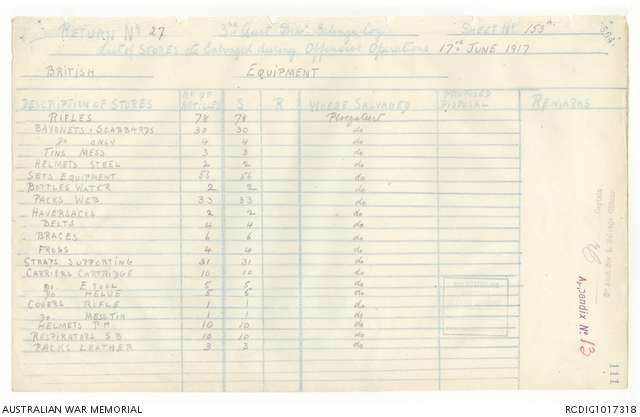 RETURN No 27 3rd Aust. Divn. Salvage Coy SHEET No 153A
List of STORES etc Salvaged during Offensive Operations 17th JUNE 1917
BRITISH EQUIPMENT
DESCRIPTION OF STORES No OF ARTICLES S R WHERE SALVAGED PROPOSED DISPOSAL REMARKS
RIFLES 78 78 Ploegsteert
BAYONETS & SCABBARDS 30 30 do
Do ONLY 4 4 do
TINS MESS 3 3 do
HELMETS STEEL 2 2 do
SETS EQUIPMENT 56 56 do
BOTTLES WATER 2 2 do
PACKS WEB 33 33 do
HAVERSACKS 2 2 do
BELTS 4 4 do
BRACES 6 6 do
FROGS 4 4 do
STRAPS SUPPORTING 31 31 do
CARRIERS CARTRIDGE 10 10 do
Do E TOOL 5 5 do
Do HELVE 5 5 do
COVERS RIFLE 1 1 do
Do MESSTIN 1 1 do
HELMETS P.H. 10 10 do
RESPIRATORS S.B 10 10 do
PACKS LEATHER 3 3 do
Captain
3rd Aust. Div'l. Salvage Officer
Appendix No 13
111
AUSTRALIAN WAR MEMORIAL RCDIG1017318